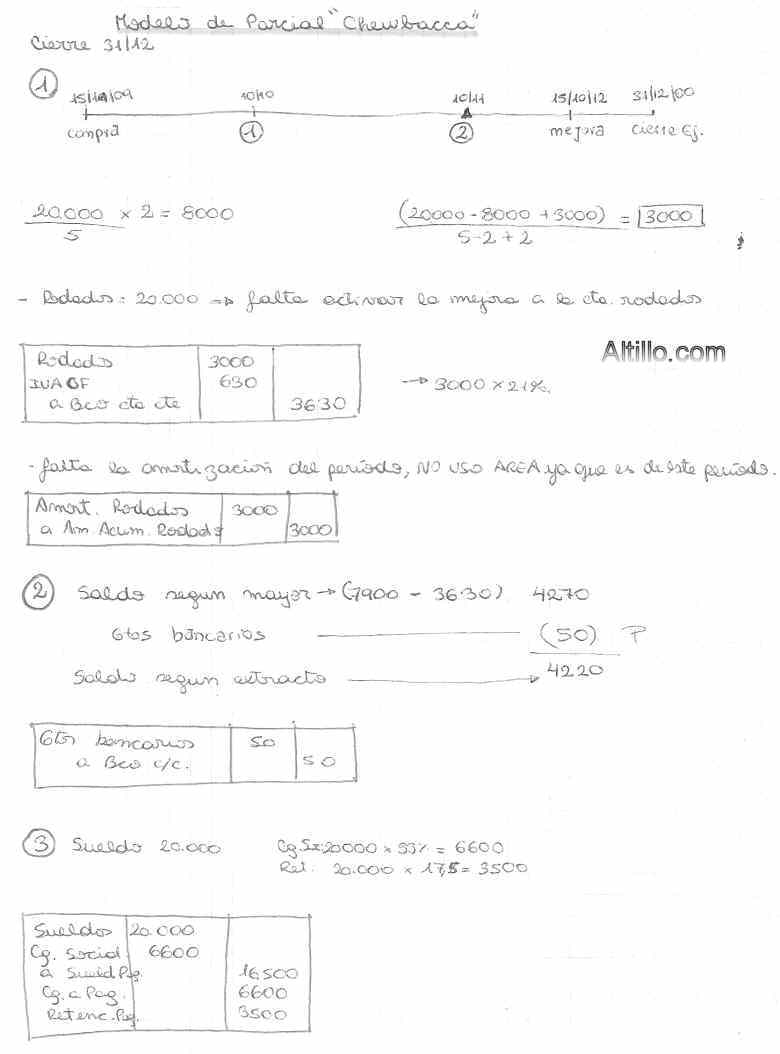 Modelo de Parcial "Chewbacca"
Cierre 31/12
① 15/10/09 10/10 10/11 15/10/12 31/12/00
compra ① ② mejora cierre Ej.
20.000 × 2 = 8000 (20000 - 8000 + 3000) = 3000
5 5-2+2
- Rodados: 20.000 => falta activar la mejora a la cta. rodados
Altillo.com
Rodados 3000
IVA CF 630 → 3000 × 21%.
a Bco cta cte 3630
- falta la amortización del período, NO USO AREA ya que es de este período.
Amort. Rodados 3000
a Am. Acum. Rodads 3000
② Saldo segun mayor → (7900 - 3630) 4270
Gtos bancarios (50) P
Saldo segun extracto 4220
Gtos bancarios 50
a Bco c/c. 50
③ Sueldo 20.000 Cg.Sx:20000 × 33% = 6600
Ret. 20.000 × 17,5= 3500
Sueldos 20.000
Cg. Social 6600
a Sueld Pag. 16500
Cg. a Pag. 6600
Retenc. Pag. 3500